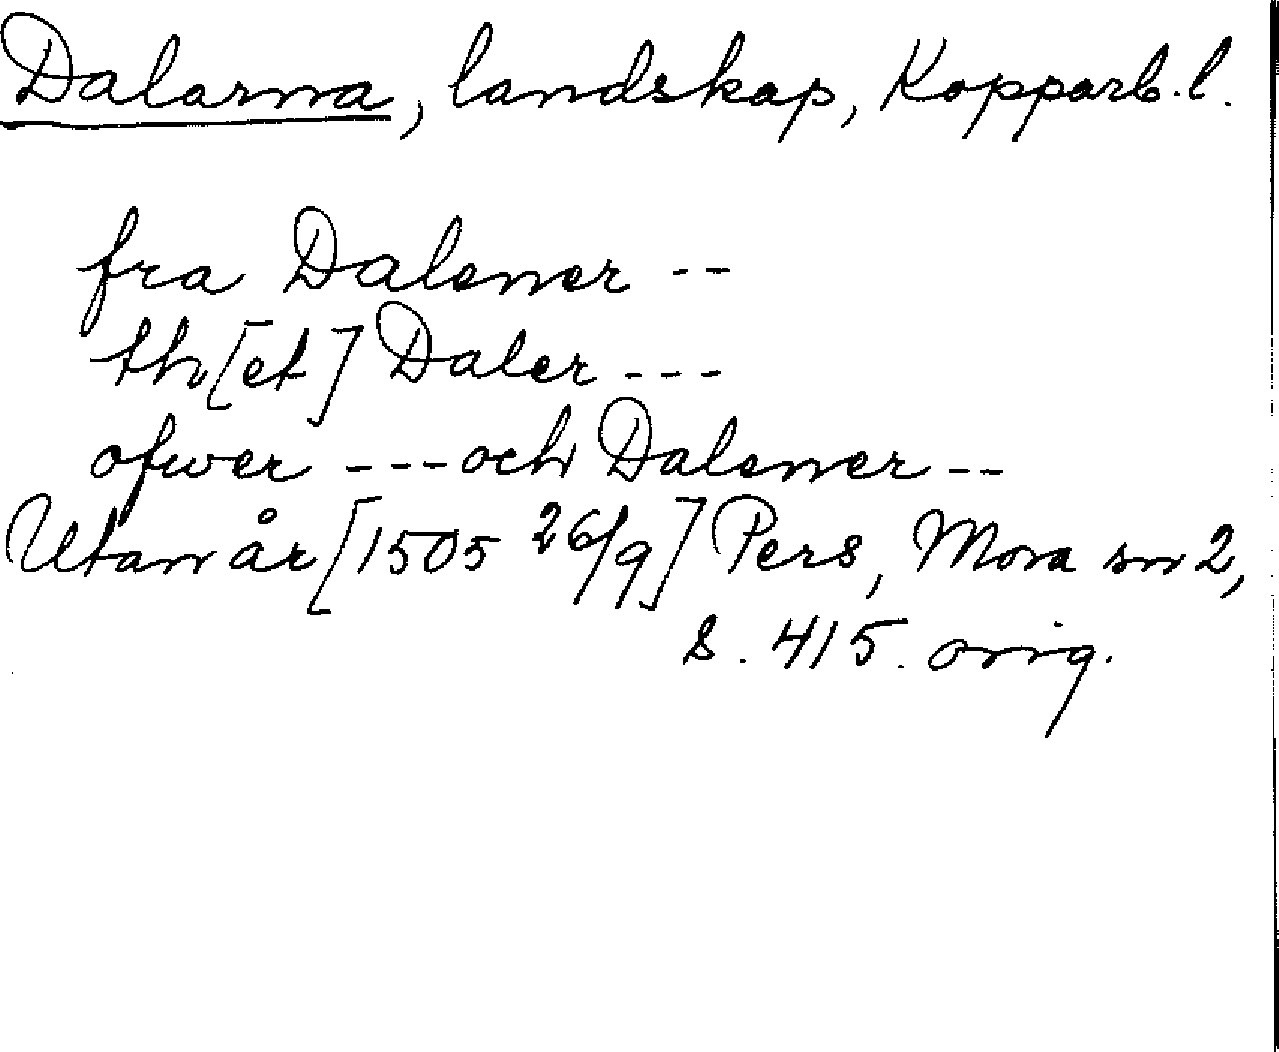 Dalarna, landskap, Kopparb. l.
fra Dalener --
th[et] Daler ---
ofwer --- och Dalener --
Utan år [1505 26/9] Pers, Mora sn 2,
s. 415. orig.